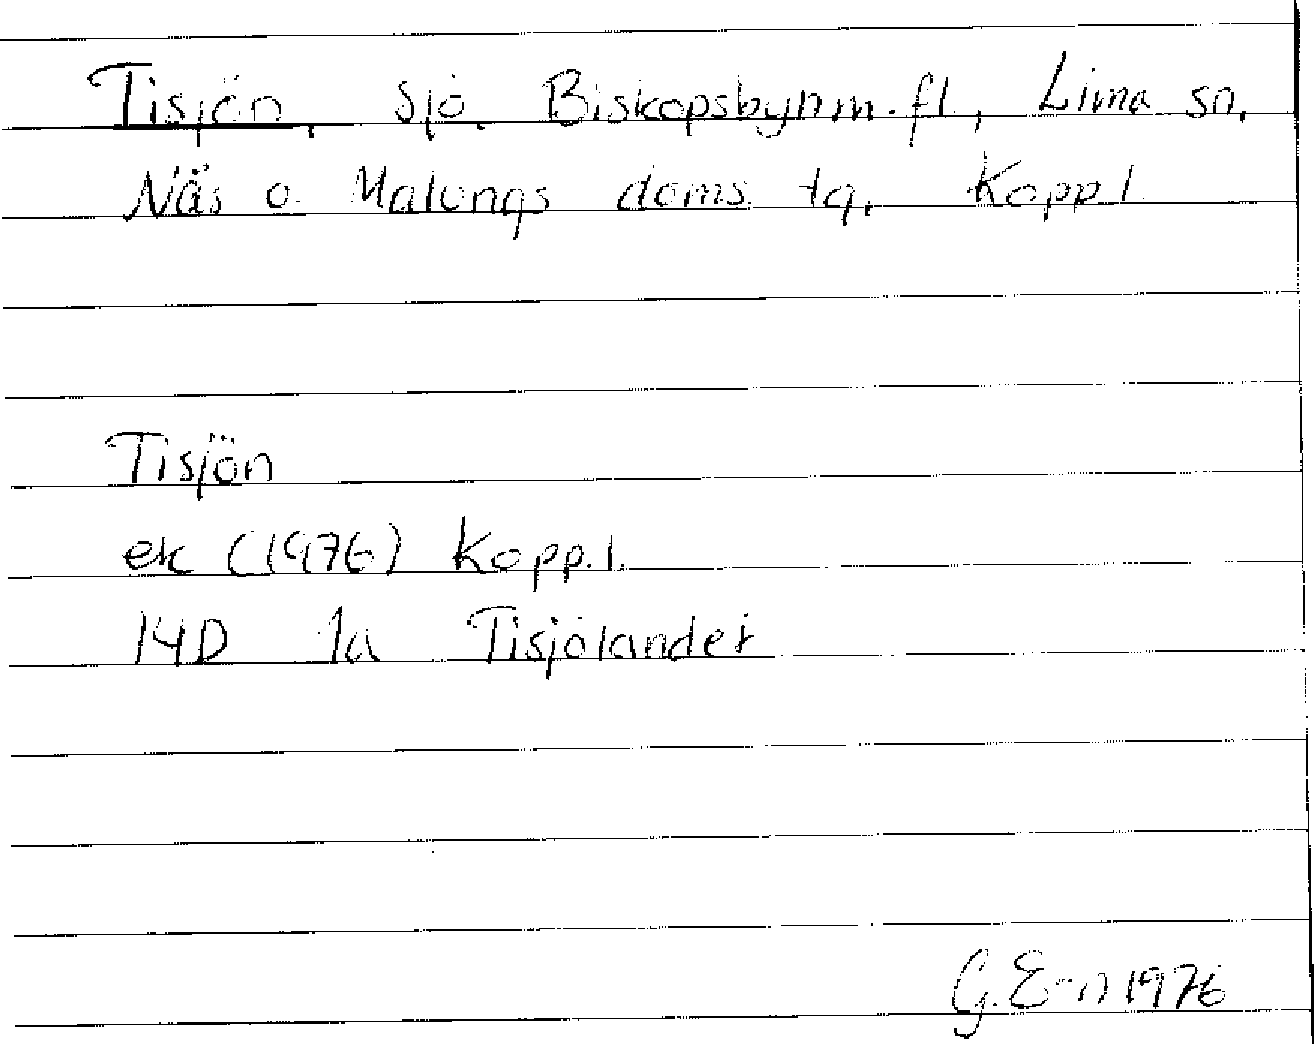 Tisjön, sjö, Biskopsbyn m.fl., Lima sn,
Näs o. Malungs doms. tg, Kopp.l
Tisjön
ek (1976) Kopp.l.
14D 1a Tisjölandet
G. E-n 1976